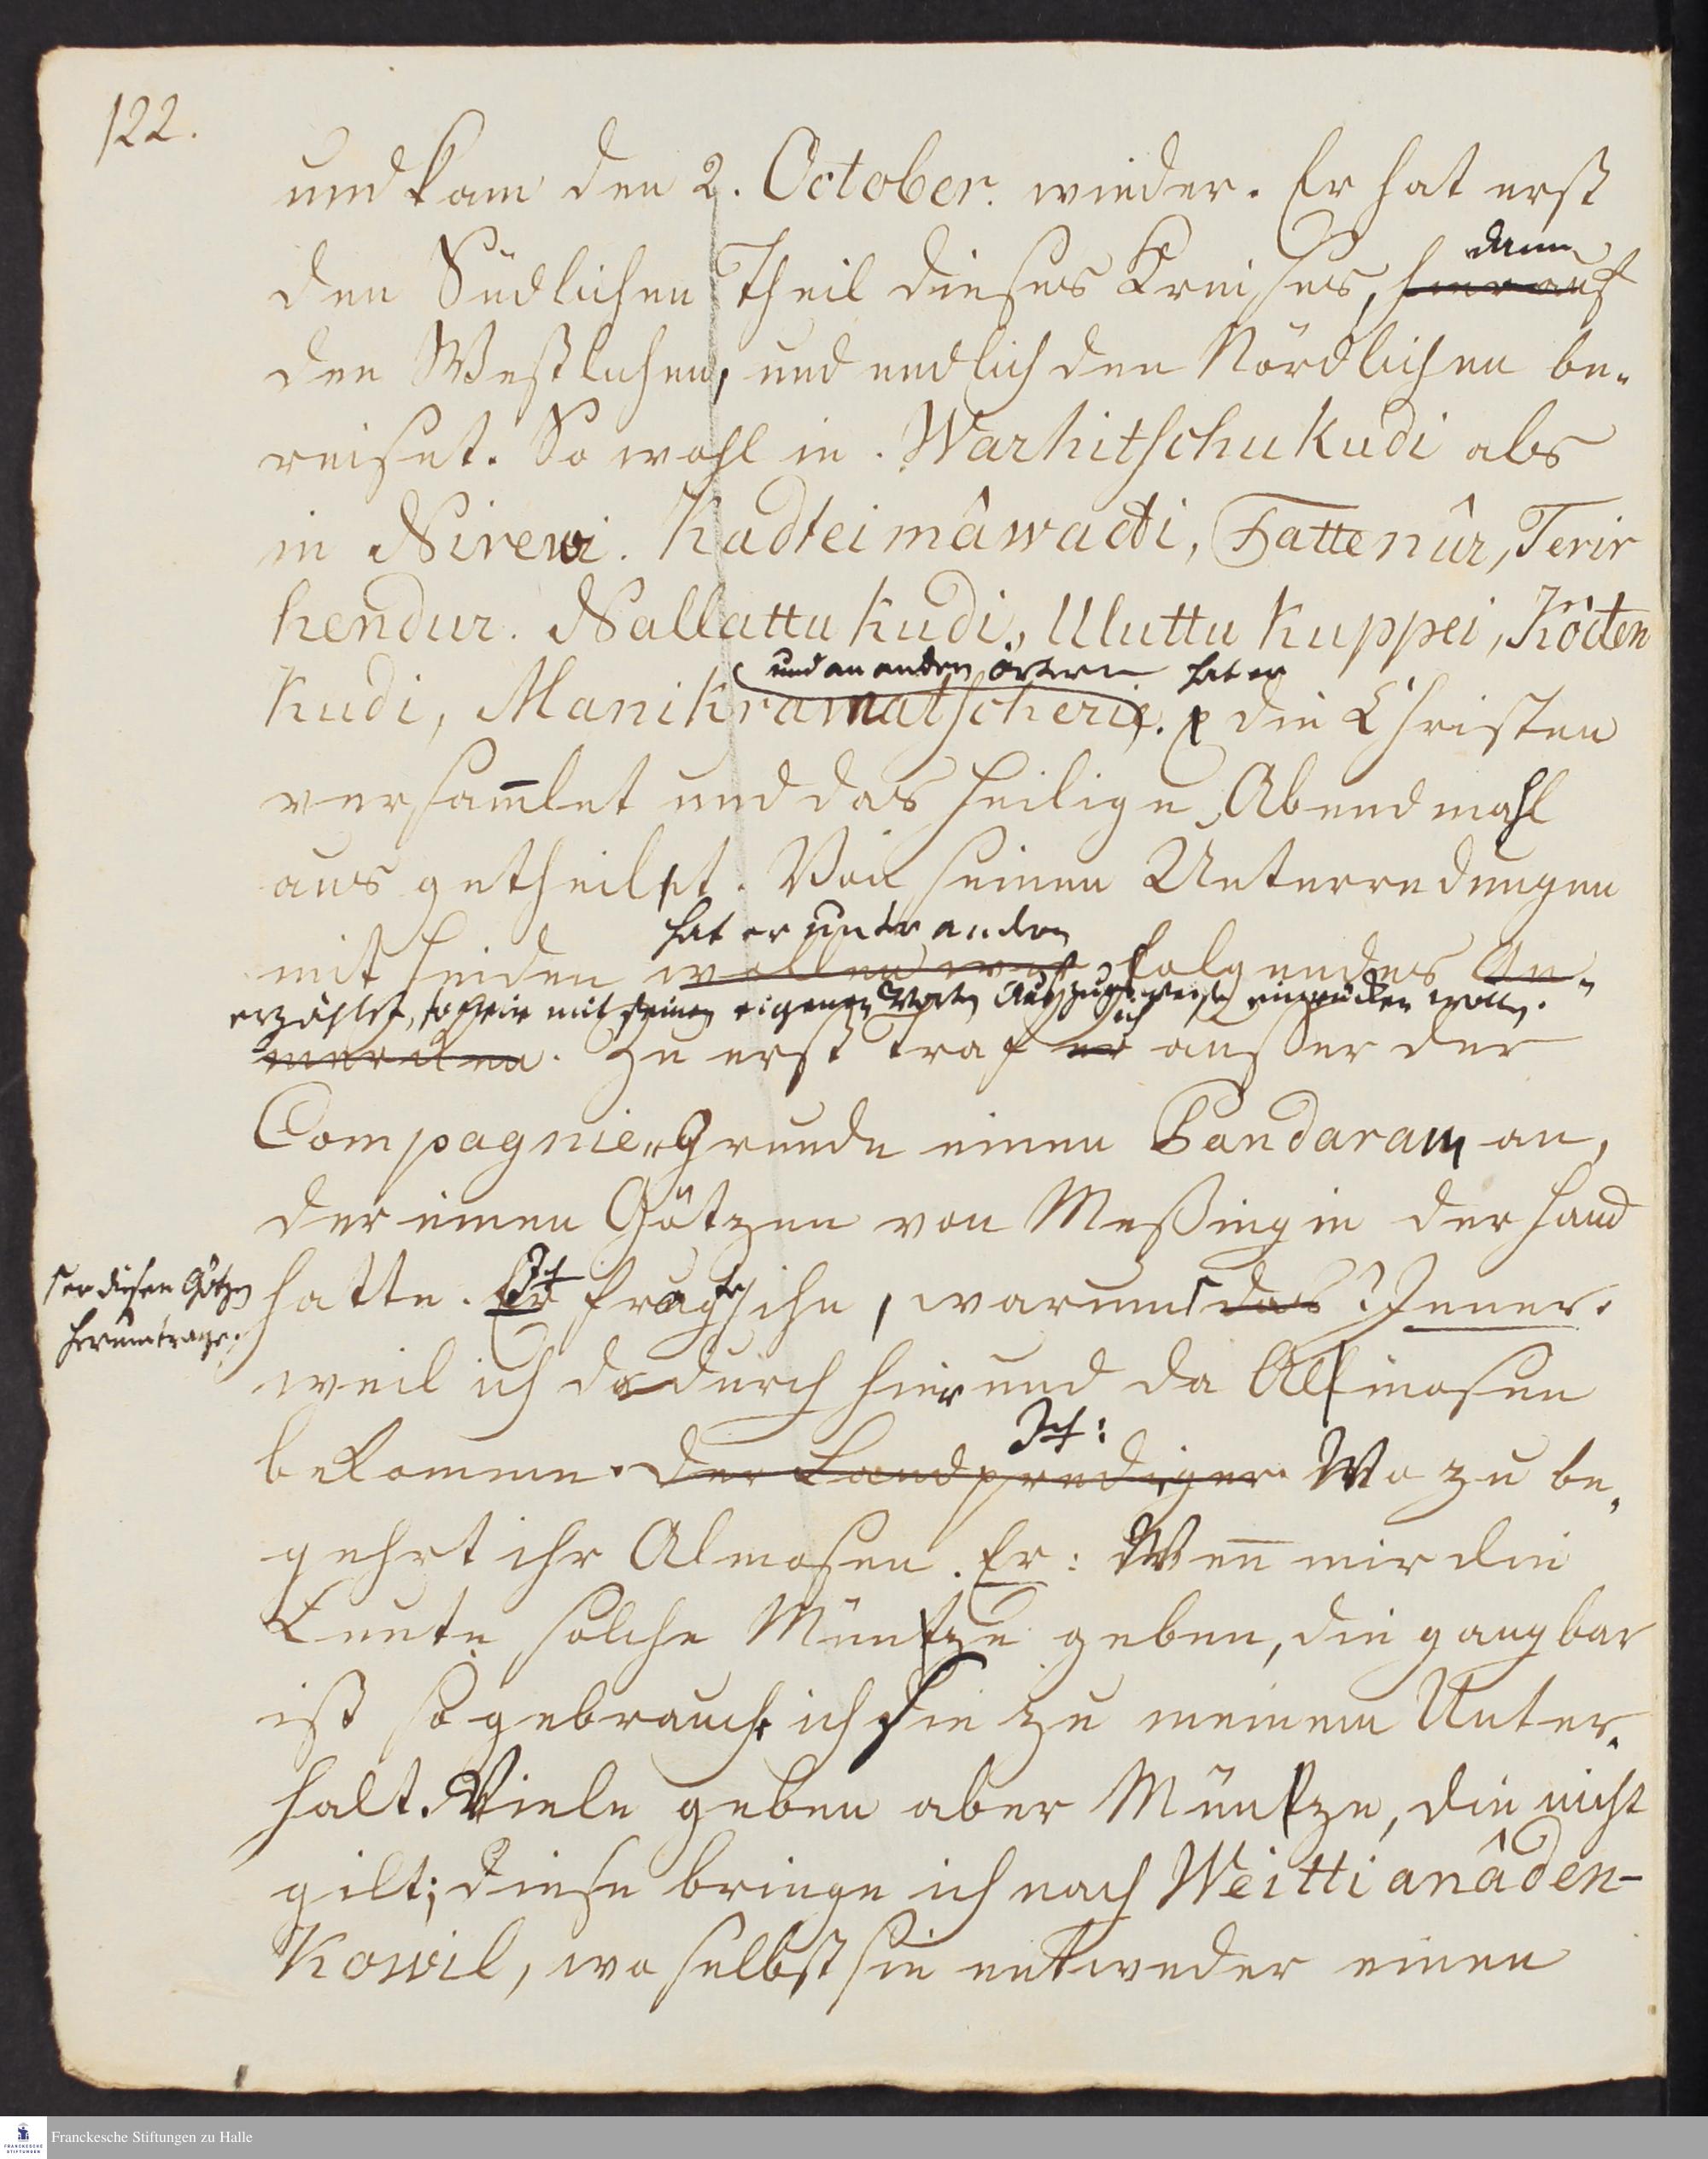 122.
und kam den 2. October. wieder. Er hat erst
dann
den Südlichen Theil dieses Kreises, hierauf
den Westlichen, und endlich den Nördlichen be-
reiset. So wohl in Warhitschukudi als
in Nirewi. Kadteimâwadi, Tattenûr, Terir
hendur. Nallattukudi, Uluttukuppei, Kôiten
und an andern örtern hat er
Kudi, Manikramatscherie. die Christen
versam̅let und das heilige Abendmahl
aus getheilet. Von seinen Unterredungen
hat er unter andern
mit Heiden wollen wir folgendes an-
erzählet, so wir mit seinen eigenen Worten Auszugsweise einrücken wollen.
ich
mercken. Zu erst traf er ausser der
Compagnie-Grunde einen Pandaram an,
der einen Götzen von Meßing in der Hand
er diesen Götzen
herumtrage.
Ich
hatte. Er fragte ihn, warum das? Jener.
weil ich dadurch hier und da Allmosen
Ich:
bekomme. Der Landprediger. Wozu be-
gehrt ihr Almosen. Er: Wen̅ mir die
Leute solche Müntze geben, die gangbar
ist so gebrauch ich sie zu meinem Unter-
halt. Viele geben aber Müntze, die nicht
gilt; diese bringe ich nach Weittianâden-
Kowil, wo selbst sie entweder einen
Franckesche Stiftungen zu Halle